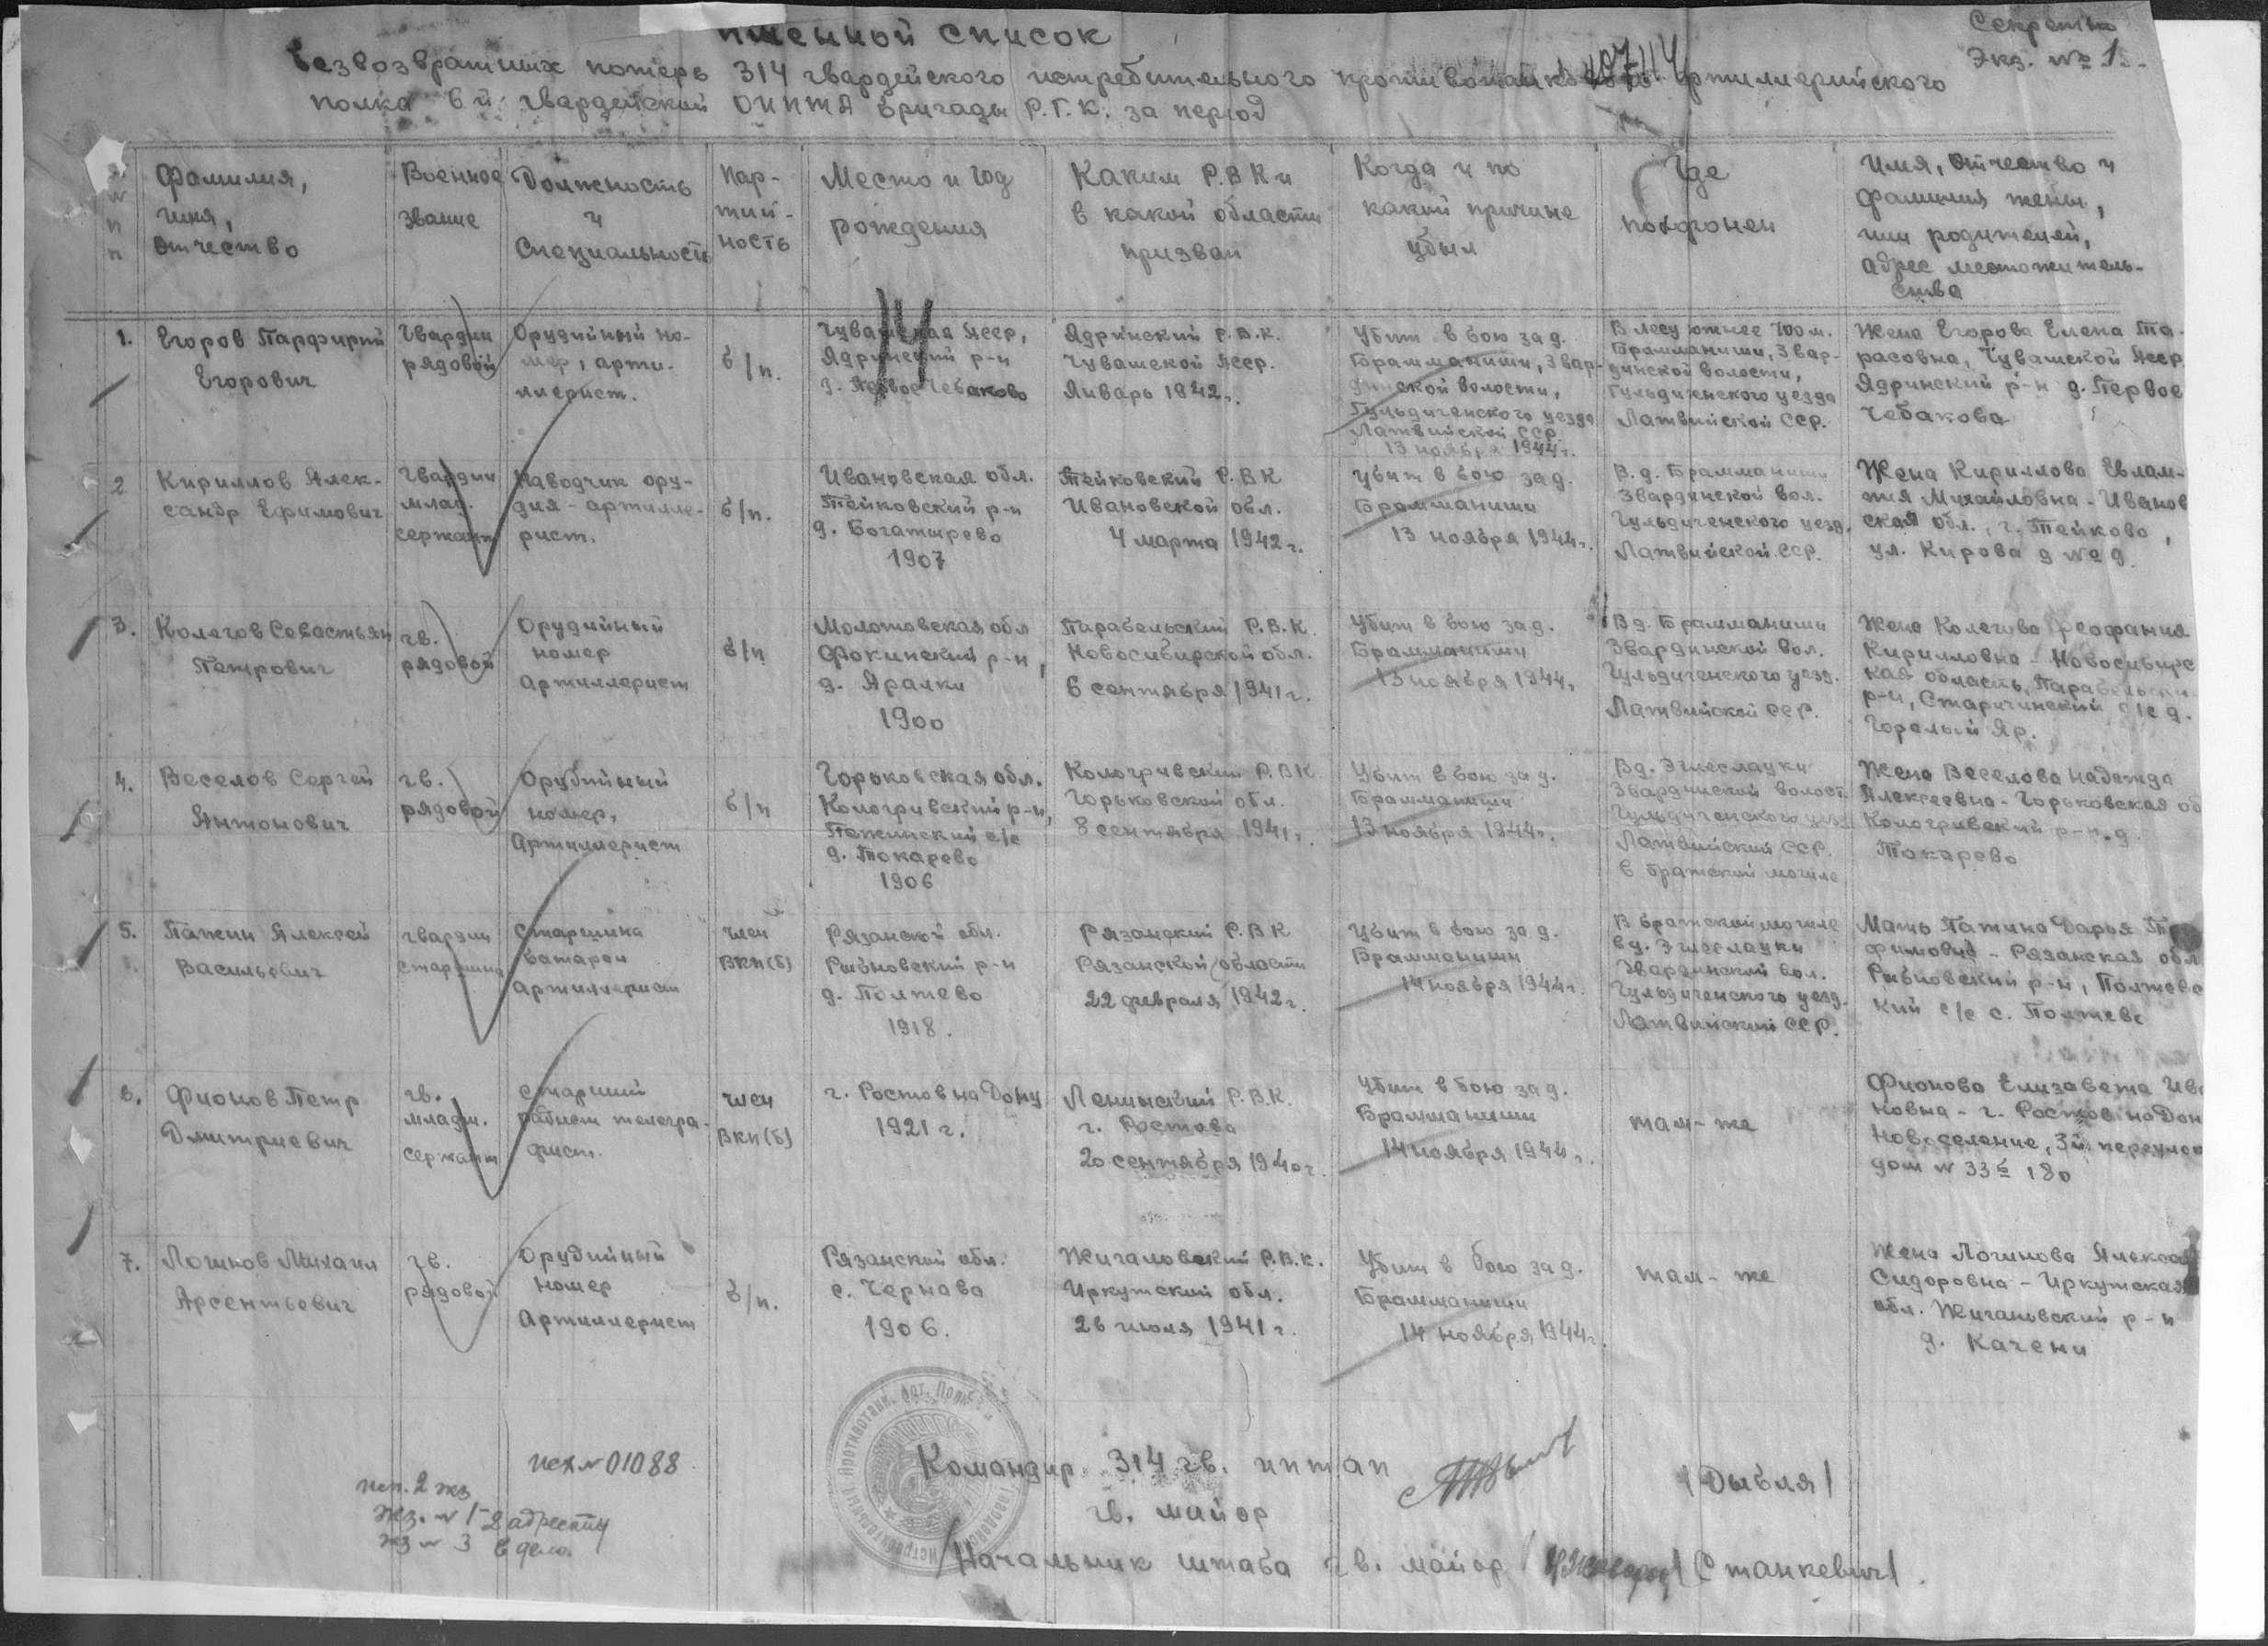 Секретно
Экз. № 1.
Именной список
безвозвратных потерь 314 гвардейского истребительного противотанкового артиллерийского
полка 6й гвардейской ОИПТА бригады Р.Г.К. за период
Фамилия,
имя,
отчество
Военное
звание
Должность
и
специальность
Пар-
тий-
ность
Место и год
рождения
Каким Р.В.К и
в какой области
призван
Когда и по
какой причине
убыл
Где
похоронен
Имя, отчество и
фамилия жены,
или родителей,
адрес местожитель-
ства
1.
Егоров Парфирий
Егорович
Гвардии
рядовой
Орудийный но-
мер, арти-
ллерист.
б/п.
Чувашская Ясср,
Ядринский р-н
д. Первое Чебаково
14
Ядринский Р.В.К.
Чувашской Ясср.
Январь 1942г.
Убит в бою за д.
Брамманиши, Звар-
динской волости,
Гульдигенского уезда
Латвийской ССР
13 ноября 1944г.
В лесу южнее 700 м.
Брамманиши, Звар-
динской волости,
Гульдигенского уезда
Латвийской ССР.
Жена Егорова Елена Та-
расовна, Чувашской Ясср
Ядринский р-н д. Первое
Чебаково
2
Кириллов Алек-
сандр Ефимович
Гвардии
млад.
сержант
Наводчик ору-
дия - артилле-
рист.
б/п.
Ивановская обл.
Тейковский р-н
д. Богатырево
1907
Тейковский Р.В.К
Ивановской обл.
4 марта 1942г.
Убит в бою за д.
Брамманиши
13 ноября 1944г.
В. д. Брамманиши
Звардинской вол.
Гульдигенского уезд.
Латвийской ССР.
Жена Кириллова Евлам-
пия Михайловна - Иванов
ская обл., г. Тейково,
ул. Кирова д № 9.
3.
Колегов Севастьян
Петрович
гв.
рядовой
Орудийный
номер
Артиллерист
б/п
Молотовская обл
Фокинский р-н,
д. Аралки
1900
Парабельский Р.В.К.
Новосибирской обл.
6 сентября 1941г.
Убит в бою за д.
Брамманиши
13 ноября 1944г.
В д. Брамманиши
Звардинской вол.
Гульдигенского уезд.
Латвийской ССР.
Жена Колегова Феофания
Кирилловна - Новосибирс
кая область, Парабельски
р-н, Старичинский с/с д.
Горелый Яр.
4.
Веселов Сергей
Антонович
гв.
рядовой
Орудийный
номер,
Артиллерист
б/п
Горьковская обл.
Кологривский р-н,
с/с
д. Токарево
1906
Кологривский Р.В.К
Горьковской обл.
8 сентября 1941г.
Убит в бою за д.
Брамманиши
13 ноября 1944г.
В д. Эглеслауки
Звардинской волост.
Гульдигенского уезд
Латвийский ССР.
в братской могиле
Жена Веселова Надежда
Алексеевна - Горьковская об
Кологривский р-н. д.
Токарево
5.
Пажин Алексей
Васильевич
гвардии
старшина
Старшина
батареи
артиллерист
член
ВКП(б)
Рязанской обл.
Рыбновский р-н
д. Полтево
1918.
Рязанский Р.В.К
Рязанской области
22 февраля 1942г.
Убит в бою за д.
Брамманиши
14 ноября 1944г.
В братской могиле
в д. Эглеслауки
Звардинской вол.
Гульдигенского уезд.
Латвийский ССР.
Мать Пажина Дарья
Рязанская обл
Рыбновский р-н, Полтевс
кий с/с с. Полтево
6.
Фионов Петр
Дмитриевич
гв.
младш.
сержант
Старший
радист телегра-
фист.
член
ВКП(б)
г. Ростов на Дону
1921 г.
Ленинский Р.В.К.
г. Ростова
20 сентября 1940г.
Убит в бою за д.
Брамманиши
14 ноября 1944г.
там-же
Фионова Елизавета Ива
новна - г. Ростов на Дон
Новоселение, 3й переулок
дом № 33 180
7.
Логинов Михаил
Арсентьевич
гв.
рядовой
Орудийный
номер
Артиллерист
б/п.
Рязанской обл.
с. Чернава
1906.
Жигаловский Р.В.К.
Иркутский обл.
26 июля 1941г.
Убит в бою за д.
Брамманиши
14 ноября 1944г.
там-же
Жена Логинова Алекса
Сидоровна - Иркутская
обл. Жигановский р-н
д. Качени
исх № 01088.
исп. 2 экз
экз. № 1-2 адресату
экз № 3 в дело.
Командир 314 гв. иптап
гв. майор
/Дыбля/
Начальник штаба гв. майор /Станкевич/.